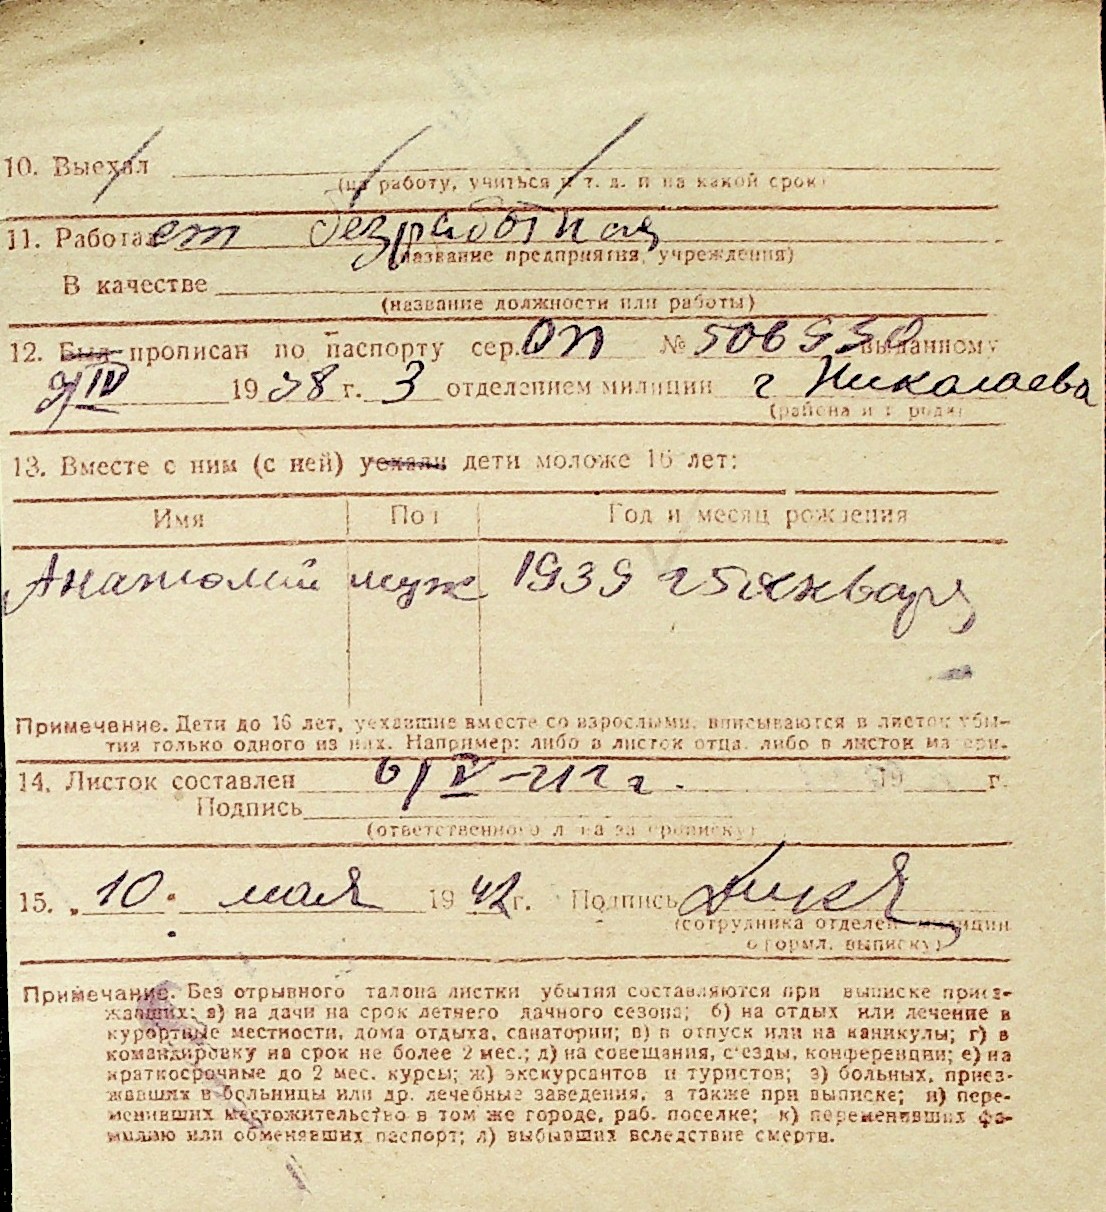 10. Выехал
(на работу, учиться и т. д. и на какой срок)
11. Работает безработная
(название предприятия, учреждения)
В качестве
(название должности или работы)
12. Был прописан по паспорту сер. ОП № 506930 выданному
9/IV 1938 г. 3 отделением милиции г Николаева
(района и города)
13. Вместе с ним (с ней) уехали дети моложе 16 лет:
Имя Пол Год и месяц рождения
Анатолий муж 1939 г 5 января
Примечание. Дети до 16 лет, уехавшие вместе со взрослыми, вписываются в листок убы-
тия только одного из них. Например: либо в листок отца, либо в листок матери.
14. Листок составлен 6/V 19 г.
Подпись
(ответственного лица за прописку)
15. „10" мая 1942 г. Подпись
(сотрудника отделен. милиции
оформл. выписку)
Примечание. Без отрывного талона листки убытия составляются при выписке приез-
жавших: а) на дачи на срок летнего дачного сезона; б) на отдых или лечение в
курортные местности, дома отдыха, санатории; в) в отпуск или на каникулы; г) в
командировку на срок не более 2 мес.; д) на совещания, съезды, конференции; е) на
краткосрочные до 2 мес. курсы; ж) экскурсантов и туристов; з) больных, приез-
жавших в больницы или др. лечебные заведения, а также при выписке; и) пере-
менивших местожительство в том же городе, раб. поселке; к) переменивших фа-
милию или обменявших паспорт; л) выбывших вследствие смерти.